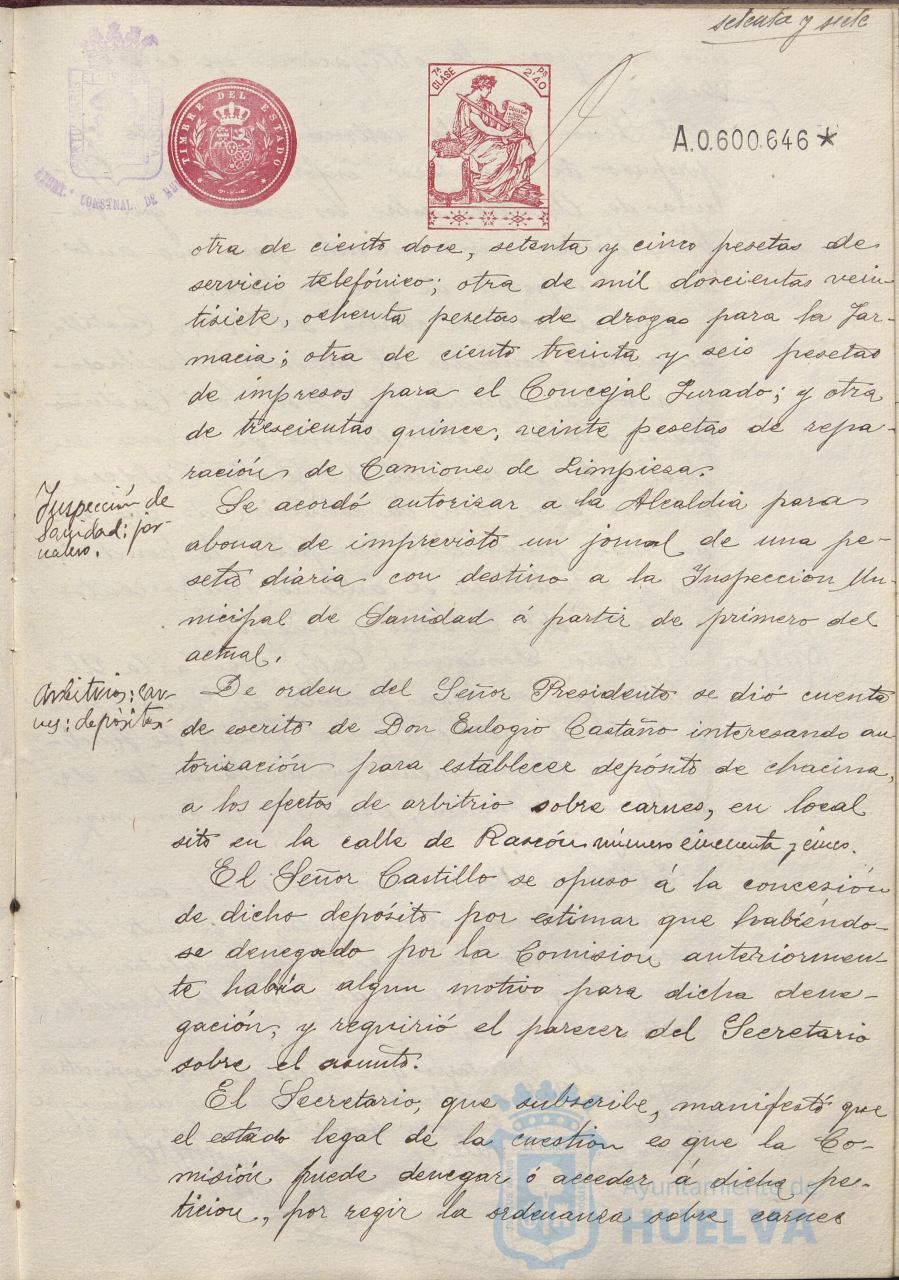 setenta y siete
TIMBRE DEL ESTADO
7ª CLASE
2'40 PS
A.0.600.646 *
CONSTNAL. DE
otra de ciento doce, setenta y cinco pesetas de
servicio telefónico; otra de mil doscientas vein
tisiete, ochenta pesetas de drogas para la Far-
macia; otra de ciento treinta y seis pesetas
de impresos para el Concejal Jurado; y otra
de trescientas quince, veinte pesetas de repa-
ración de Camiones de Limpieza.
Inspección de
Sanidad: jor-
nales.
Se acordó autorisar a la Alcaldia para
abonar de imprevisto un jornal de una pe-
seta diaria con destino a la Inspeccion Mu-
nicipal de Sanidad á partir de primero del
actual.
Arbitrios: car-
nes: depósitos.
De orden del Señor Presidente se dió cuenta
de escrito de Don Eulogio Castaño interesando au
torización para establecer depósito de chacina,
a los efectos de arbitrio sobre carnes, en local
sito en la calle de Rascón número cincuenta y cinco.
El Señor Castillo se opuso á la concesión
de dicho depósito por estimar que habiéndo-
se denegado por la Comision anteriormen-
te había algun motivo para dicha dene-
gación, y requirió el parecer del Secretario
sobre el asunto.
El Secretario, que subscribe, manifestó que
el estado legal de la cuestion es que la Co-
misión puede denegar ó acceder á dicha pe-
ticion, por regir la ordenanza sobre carnes
Ayuntamiento de
HUELVA